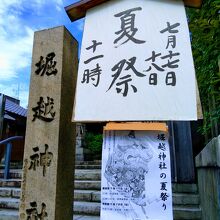 七月十七日
十八日
夏祭
十一時
堀越神社
堀越神社の夏祭り